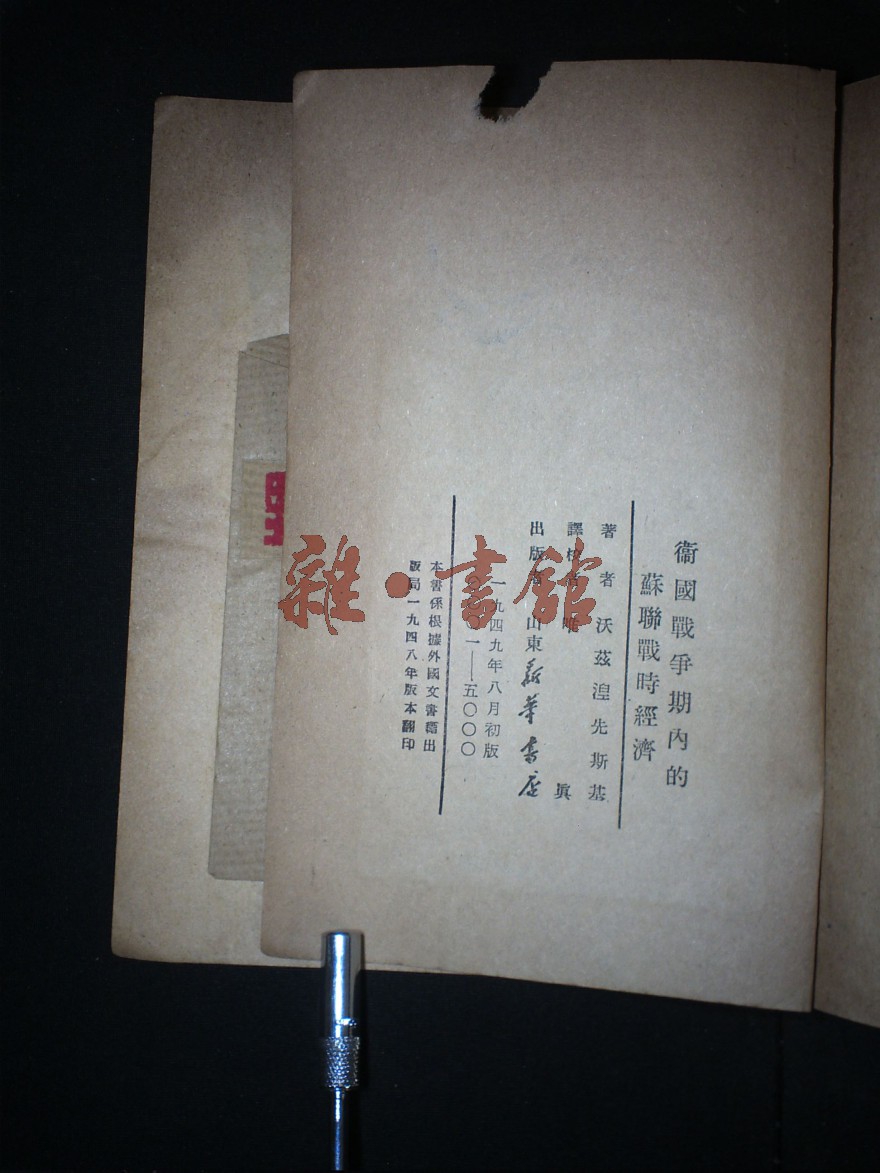 衞國戰爭期內的
蘇聯戰時經濟
著者 沃茲湼先斯基
譯校者 唯眞
出版者 山東新華書店
一九四九年八月初版
一——五〇〇〇
本書係根據外國文書籍出
版局一九四八年版本翻印
雜·書館